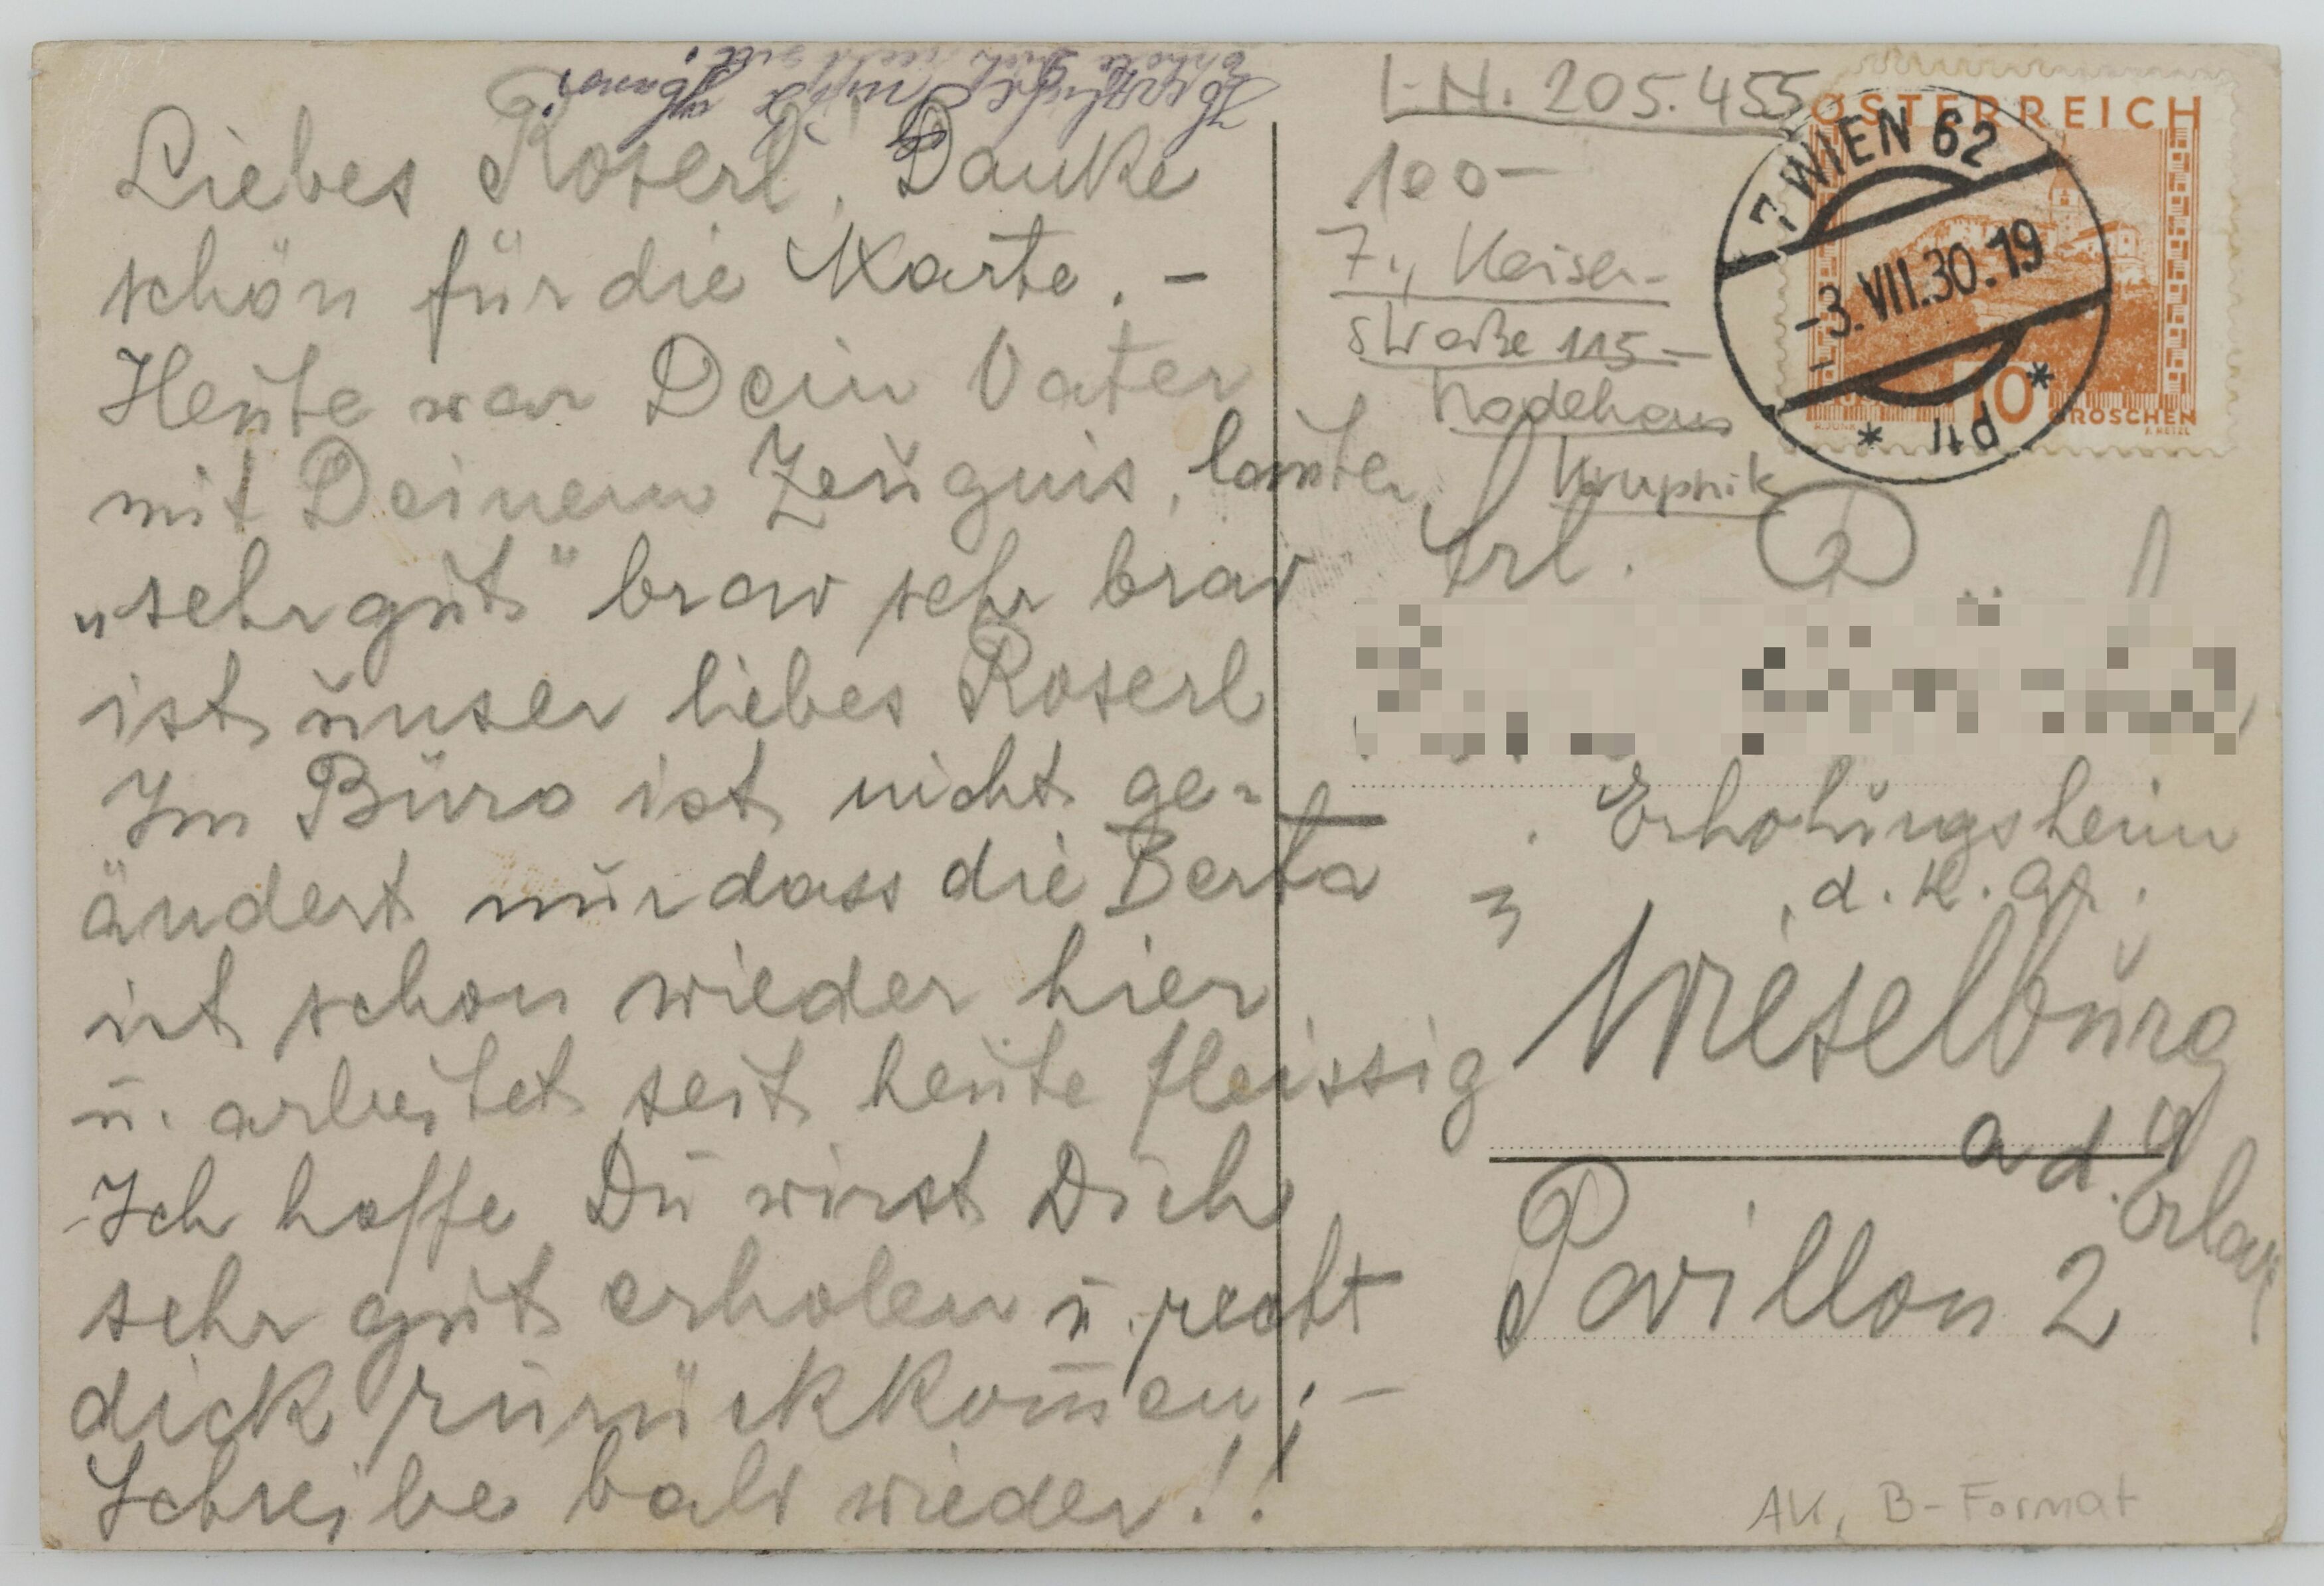 Liebes Roserl, Danke
schön für die Karte. -
Heute war Dein Vater
mit Deinem Zeugnis, lauter
„sehr gut" brav sehr brav
ist unser liebes Roserl
Im Büro ist nicht ge-
ändert nur dass die Berta
ist schon wieder hier
u. arbeitet seit heute fleissig
Ich hoffe Du wirst Dich
sehr gut erholen u. recht
dick zurückkom̄en; -
Schreibe bald wieder!!
Herzliche
erhole Dich recht gut!
I.N. 205.455
100-
7., Kaiser-
straße 115-
Modehaus
Krupnik
ÖSTERREICH
10 GROSCHEN
7 WIEN 62
-3.VII.30.19
* *
Frl.
Erholungsheim
d. K.
Wieselburg
a d. Erlaf
Pavillon 2
AK, B-Format